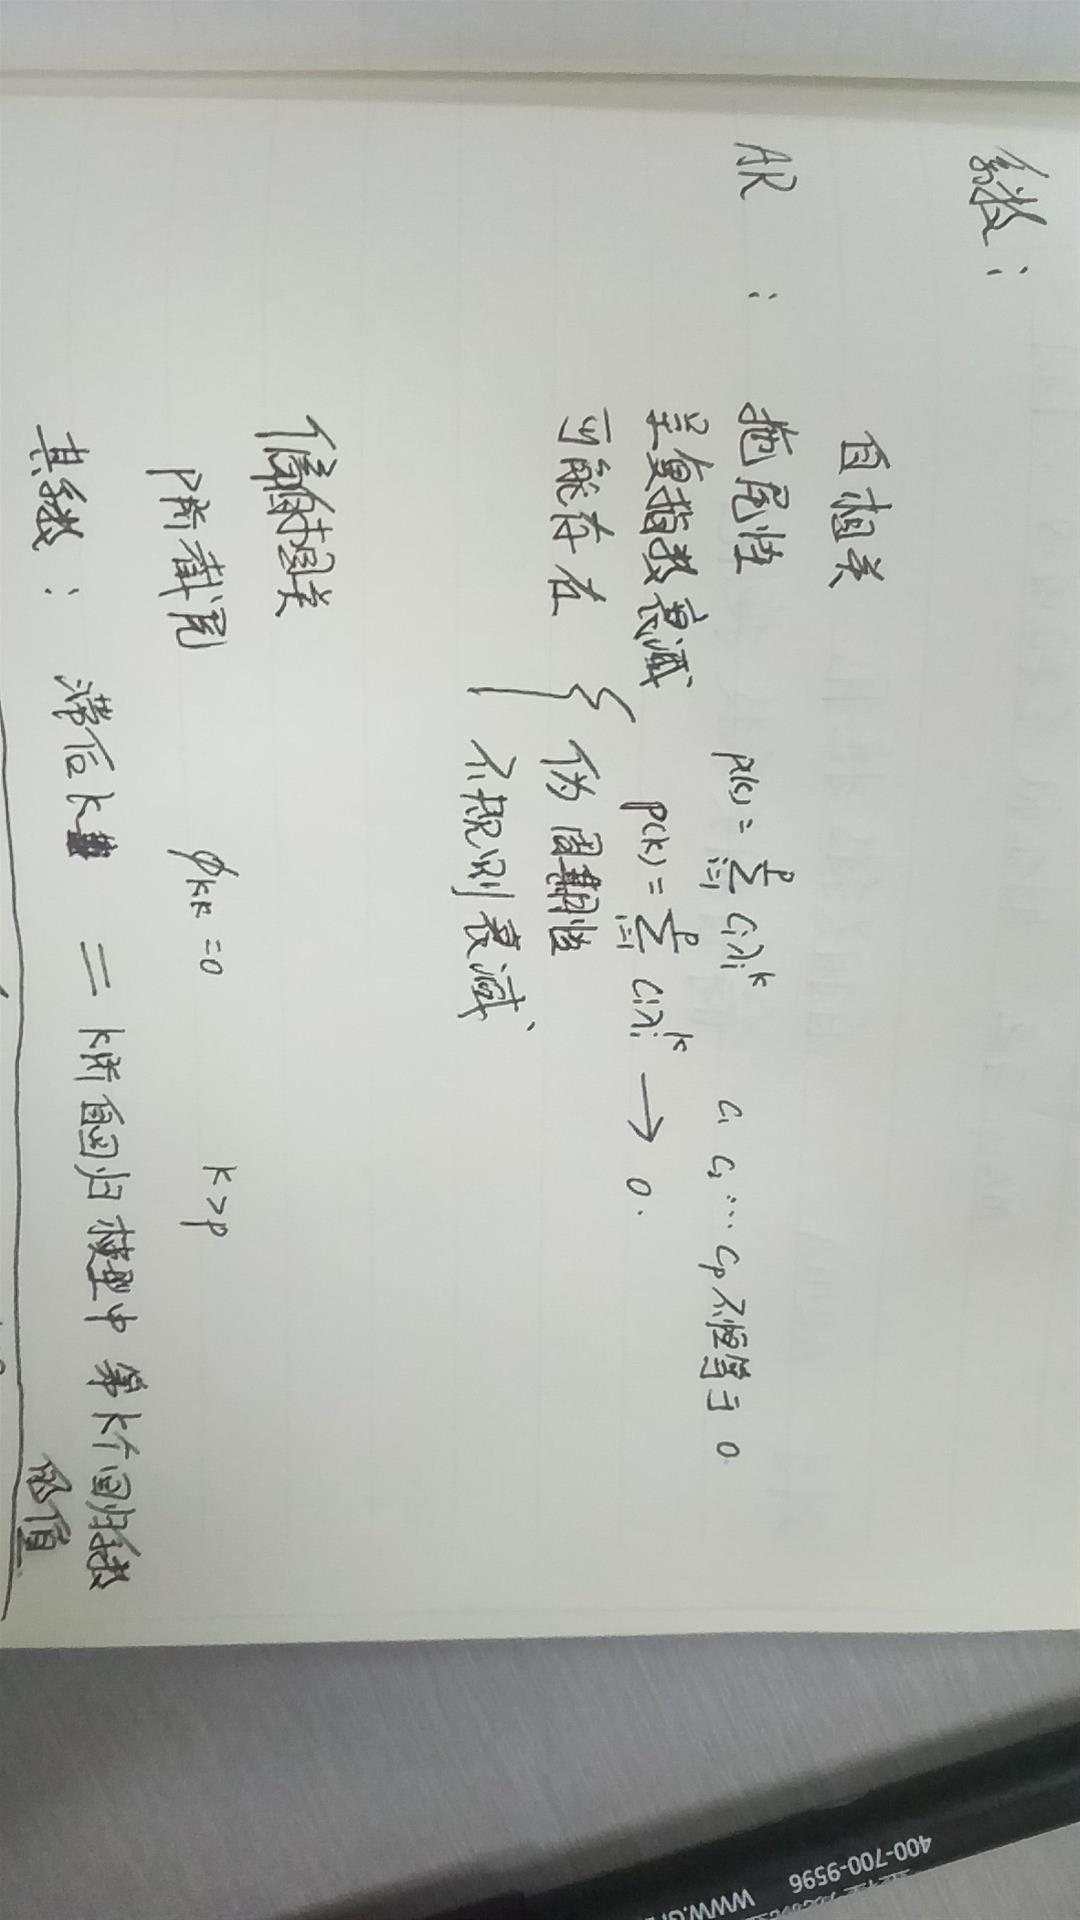 系数：
自相关
AR : 拖尾性 ρ(k) = Σ_{i=1}^{p} c_i λ_i^k c_1 c_2 … c_p 不恒等于 0
呈负指数衰减 ρ(k) = Σ_{i=1}^{p} c_i λ_i^k → 0.
可能存在 { 伪周期性
不规则衰减
偏自相关
p阶截尾 φ_{kk} = 0 k > p
其系数： 滞后k = k阶自回归模型中 第k个回归系数
的值
400-700-9596
WWW.G